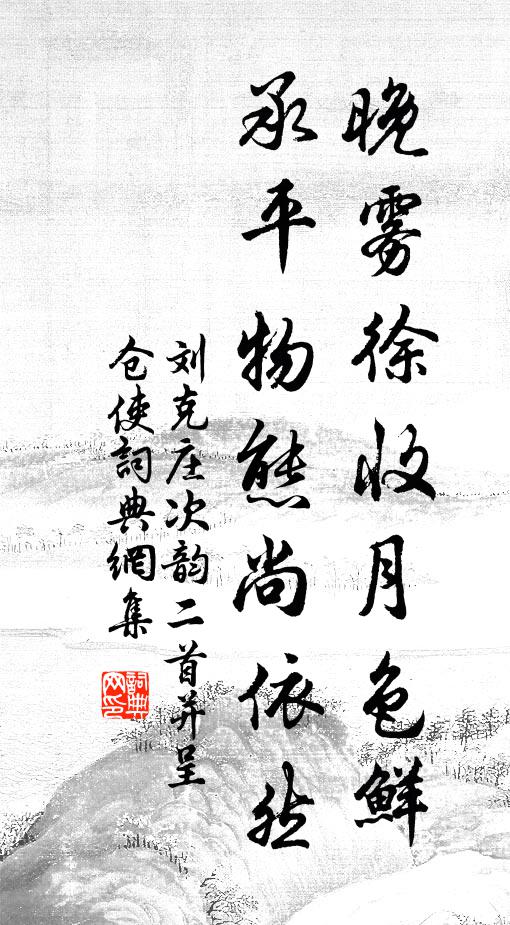 晚雾徐收月色鲜
承平物態尚依然
刘克庄次韵二首并呈
仓使詞典網集
詞典
网印